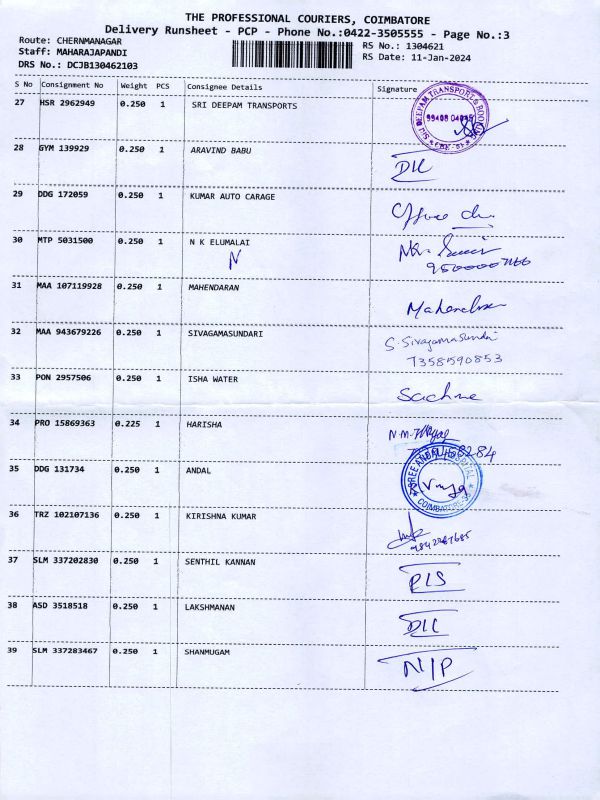 THE PROFESSIONAL COURIERS, COIMBATORE
Delivery Runsheet - PCP - Phone No.:0422-3505555 - Page No.:3
Route: CHERNMANAGAR RS No.: 1304621
Staff: MAHARAJAPANDI RS Date: 11-Jan-2024
DRS No.: DCJB130462103
S No Consignment No Weight PCS Consignee Details Signature
27 HSR 2962949 0.250 1 SRI DEEPAM TRANSPORTS
28 GYM 139929 0.250 1 ARAVIND BABU DIL
29 DDG 172059 0.250 1 KUMAR AUTO CARAGE Office
30 MTP 5031500 0.250 1 N K ELUMALAI
N
31 MAA 107119928 0.250 1 MAHENDARAN
32 MAA 943679226 0.250 1 SIVAGAMASUNDARI S. Sivagamasundari
7358590853
33 PON 2957506 0.250 1 ISHA WATER
34 PRO 15869363 0.225 1 HARISHA
35 DDG 131734 0.250 1 ANDAL
36 TRZ 102107136 0.250 1 KIRISHNA KUMAR
37 SLM 337202830 0.250 1 SENTHIL KANNAN
38 ASD 3518518 0.250 1 LAKSHMANAN DIL
39 SLM 337283467 0.250 1 SHANMUGAM N/P